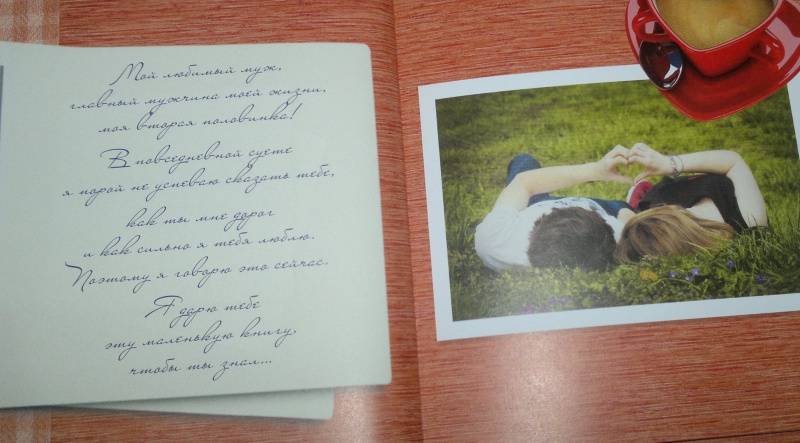 Мой любимый муж,
главный мужчина моей жизни,
моя вторая половинка!
В повседневной суете
я порой не успеваю сказать тебе,
как ты мне дорог
и как сильно я тебя люблю.
Поэтому я говорю это сейчас.
Я дарю тебе
эту маленькую книгу,
чтобы ты знал...